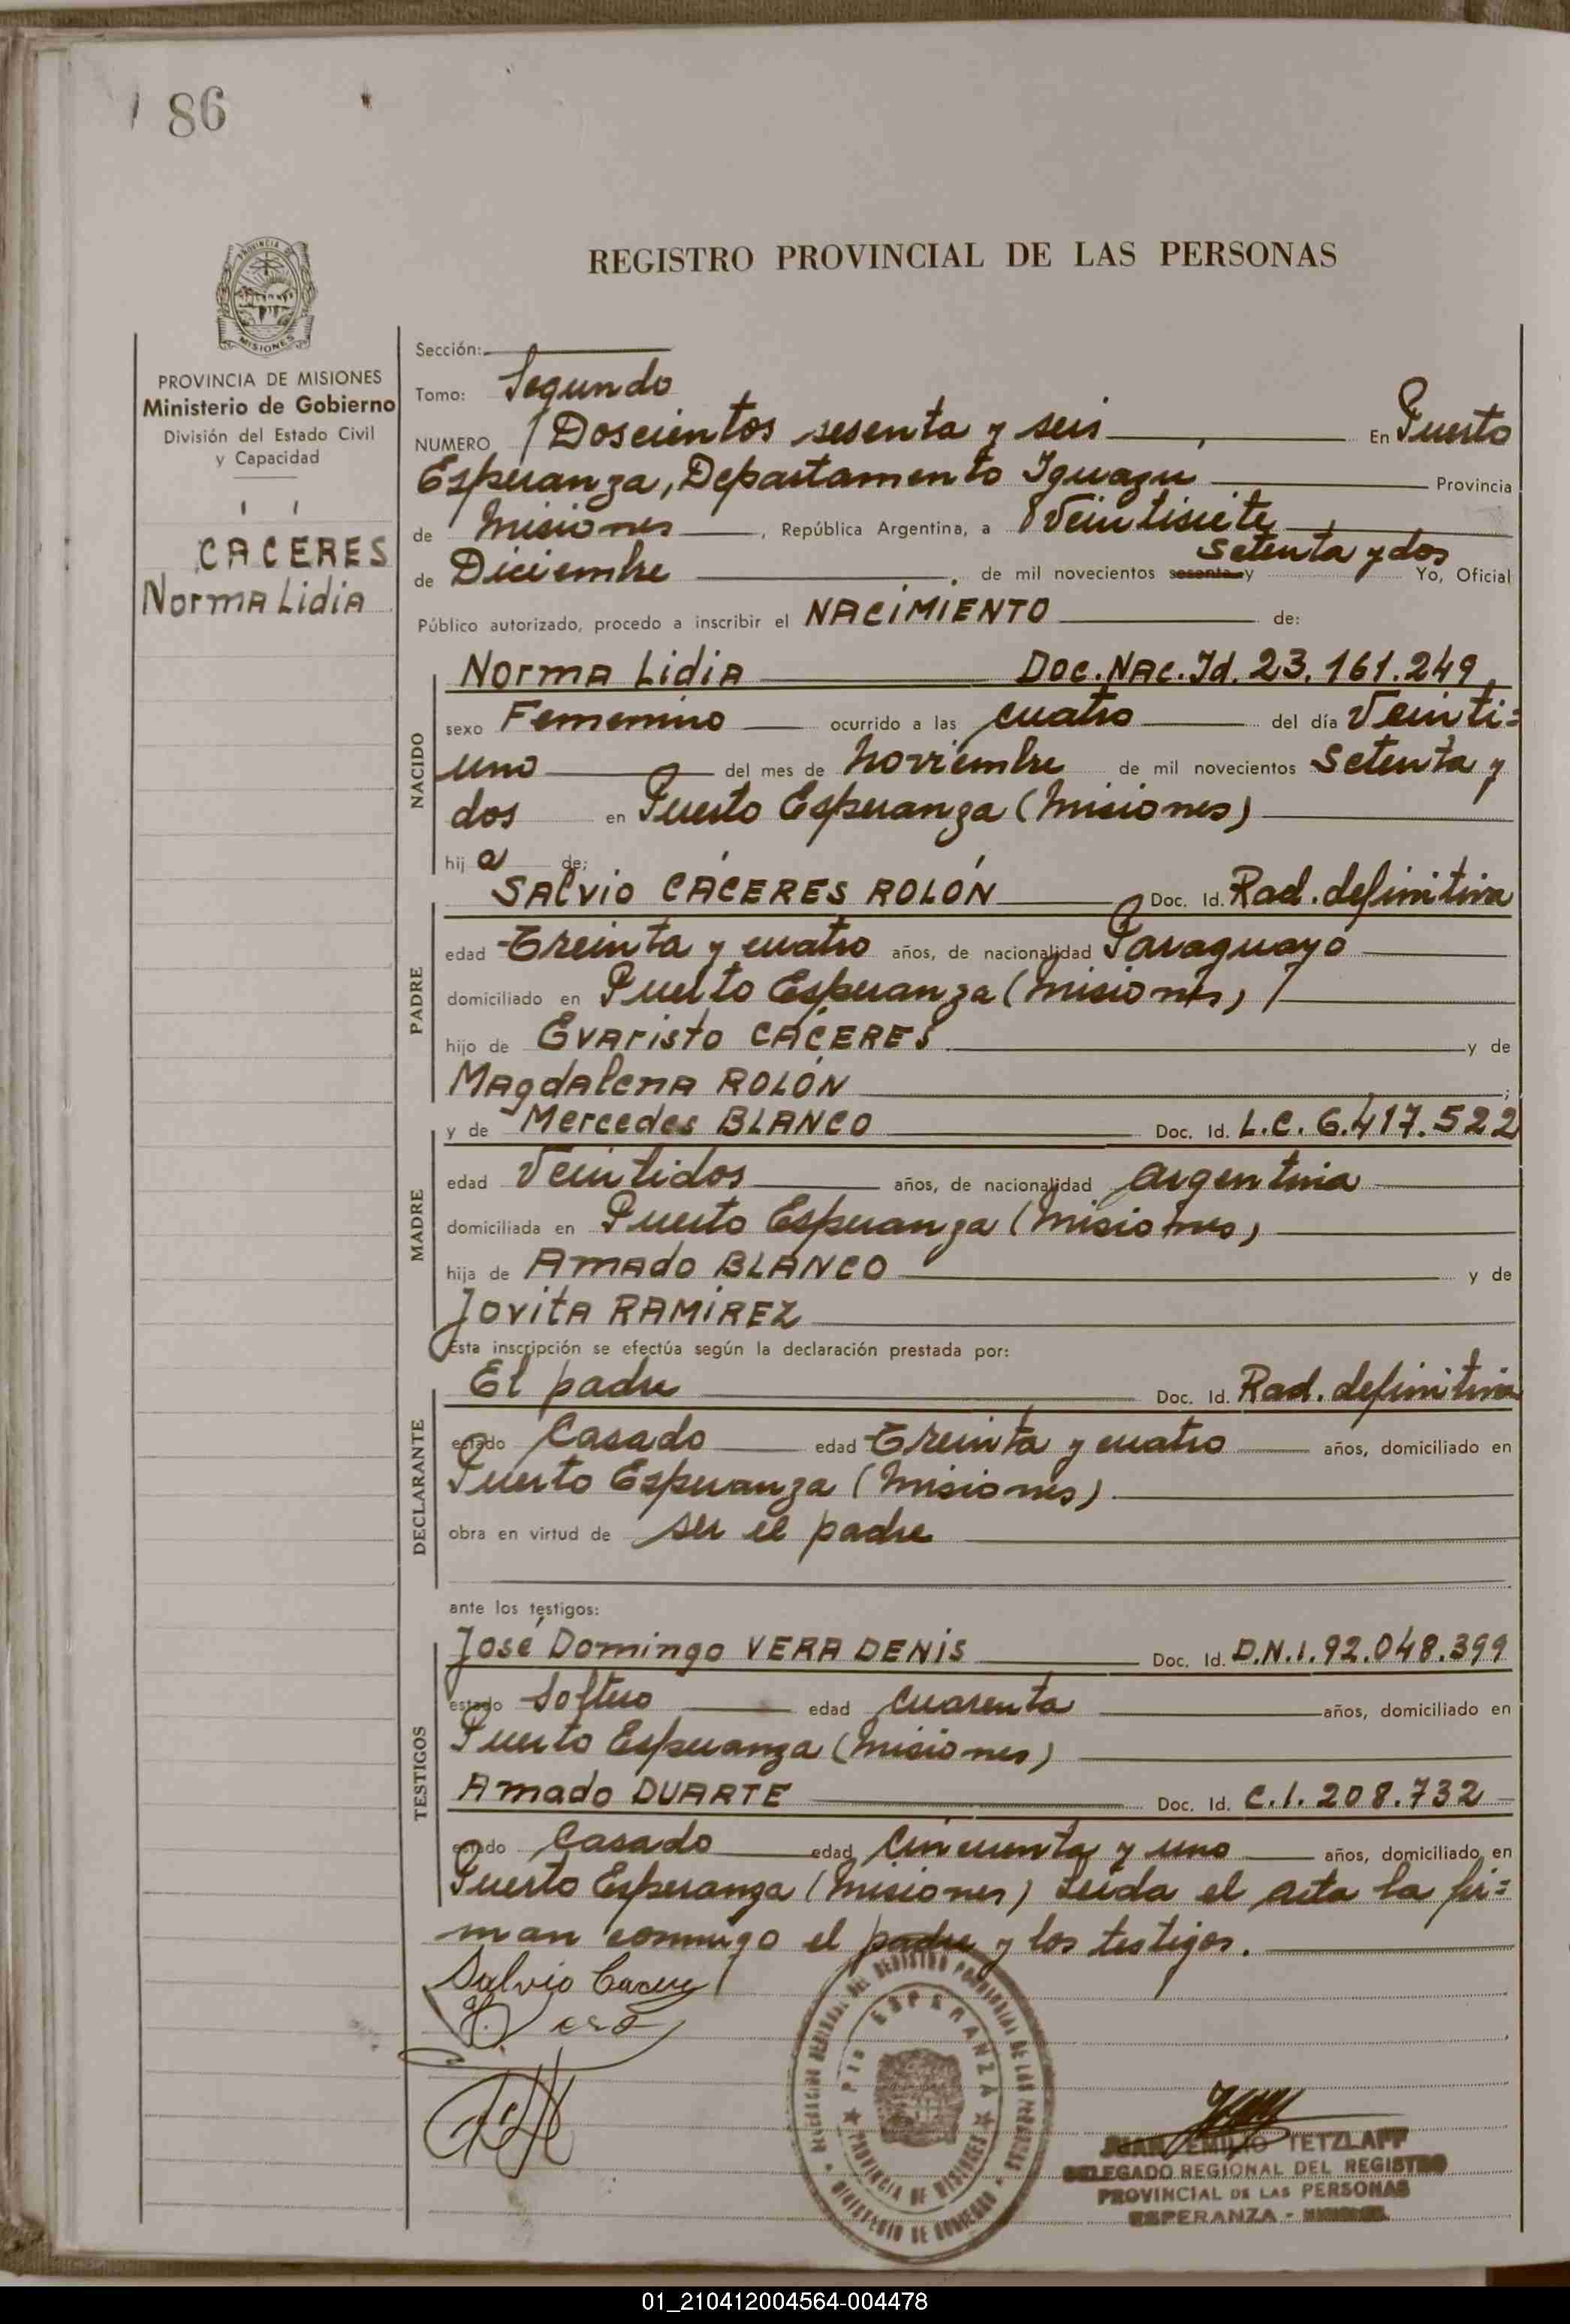 86
REGISTRO PROVINCIAL DE LAS PERSONAS
PROVINCIA DE
MISIONES
PROVINCIA DE MISIONES
Ministerio de Gobierno
División del Estado Civil
y Capacidad
CÁCERES
Norma Lidia
Sección:
Tomo: Segundo
NUMERO Doscientos sesenta y seis, En Puerto
Esperanza, Departamento Iguazú Provincia
de Misiones, República Argentina, a Veintisiete
de Diciembre, de mil novecientos sesenta y setenta y dos Yo, Oficial
Público autorizado, procedo a inscribir el NACIMIENTO de:
NACIDO
Norma Lidia Doc. Nac. Id. 23.161.249
sexo Femenino ocurrido a las cuatro del día Veinti=
uno del mes de Noviembre de mil novecientos Setenta y
dos en Puerto Esperanza (Misiones)
hij a de:
PADRE
SALVIO CÁCERES ROLÓN Doc. Id. Rad. definitiva
edad Treinta y cuatro años, de nacionalidad Paraguayo
domiciliado en Puerto Esperanza (Misiones)
hijo de Evaristo CÁCERES y de
Magdalena ROLÓN;
MADRE
y de Mercedes BLANCO Doc. Id. L.C. 6.417.522
edad Veintidos años, de nacionalidad Argentina
domiciliada en Puerto Esperanza (Misiones)
hija de Amado BLANCO y de
Jovita RAMIREZ
Esta inscripción se efectúa según la declaración prestada por:
DECLARANTE
El padre Doc. Id. Rad. definitiva
estado Casado edad Treinta y cuatro años, domiciliado en
Puerto Esperanza (Misiones)
obra en virtud de ser el padre
ante los testigos:
TESTIGOS
José Domingo VERA DENIS Doc. Id. D.N.I. 92.048.399
estado Soltero edad Cuarenta años, domiciliado en
Puerto Esperanza (Misiones)
Amado DUARTE Doc. Id. C.I. 208.732
estado Casado edad Cincuenta y uno años, domiciliado en
Puerto Esperanza (Misiones) Leida el acta la fir=
man conmigo el padre y los testigos.
Salvio Cacere
DEL REGISTRO PROVINCIAL DE LAS PERSONAS
Pto ESPERANZA
PROVINCIA DE MISIONES
MINISTERIO DE GOBIERNO
JUAN EMILIO TETZLAFF
DELEGADO REGIONAL DEL REGISTRO
PROVINCIAL DE LAS PERSONAS
ESPERANZA - MISIONES
01_210412004564-004478